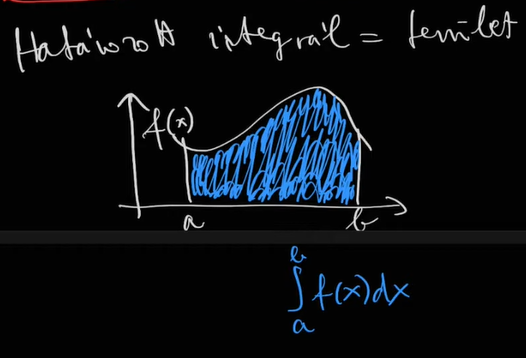 Határozott integrál = terület
f(x)
a b
∫ₐᵇ f(x)dx